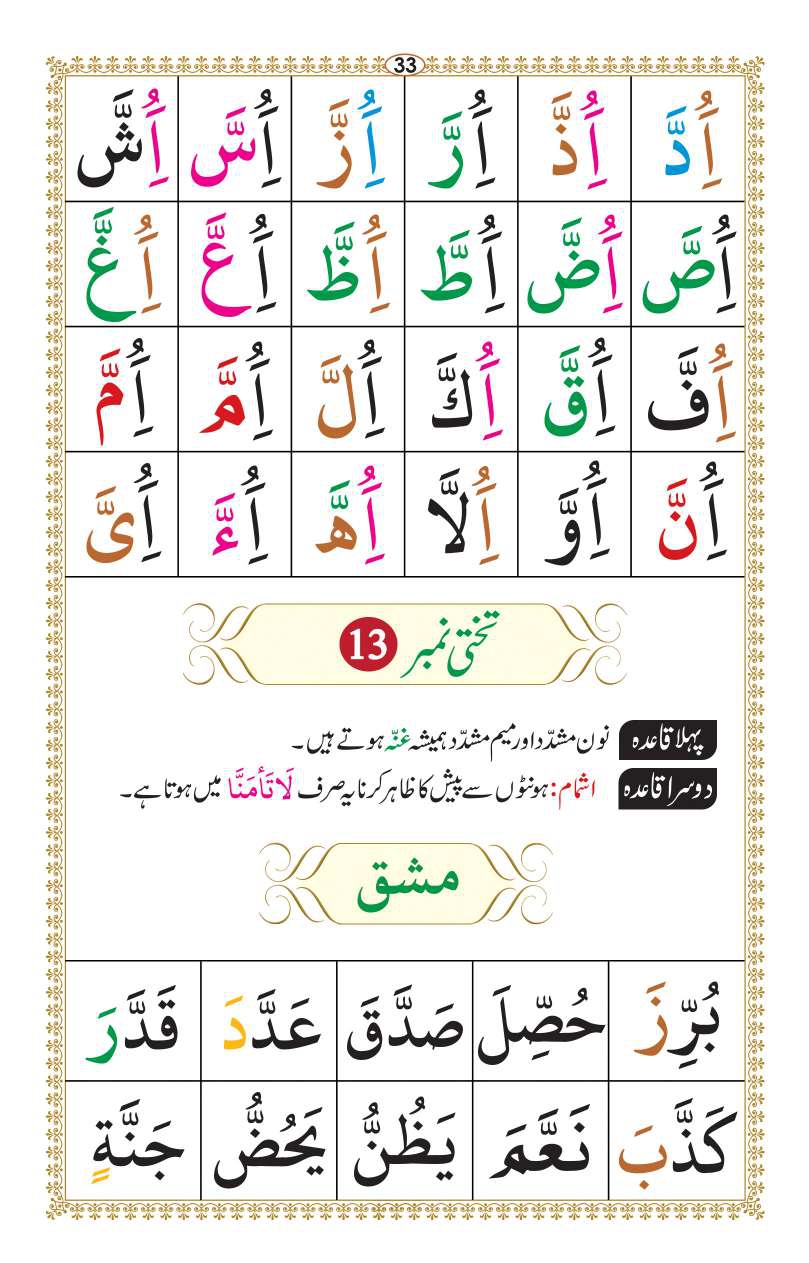 33
اَُِدَّ اَُِذَّ اَُِرَّ اَُِزَّ اَُِسَّ اَُِشَّ
اَُِصَّ اَُِضَّ اَُِطَّ اَُِظَّ اَُِعَّ اَُِغَّ
اَُِفَّ اَُِقَّ اَُِكَّ اَُِلَّ اَُِمَّ اَُِمَّ
اَُِنَّ اَُِوَّ اَُِلَّا اَُِهَّ اَُِءَّ اَُِىَّ
تختی نمبر 13
پہلا قاعدہ نون مشدّد اور میم مشدّد ہمیشہ غنّہ ہوتے ہیں۔
دوسرا قاعدہ اشمام: ہونٹوں سے پیش کا ظاہر کرنا یہ صرف لَا تَأْمَنَّا میں ہوتا ہے۔
مشق
بُرِّزَ حُصِّلَ صَدَّقَ عَدَّدَ قَدَّرَ
كَذَّبَ نَعَّمَ يَظُنُّ يَحُضُّ جَنَّةٍ